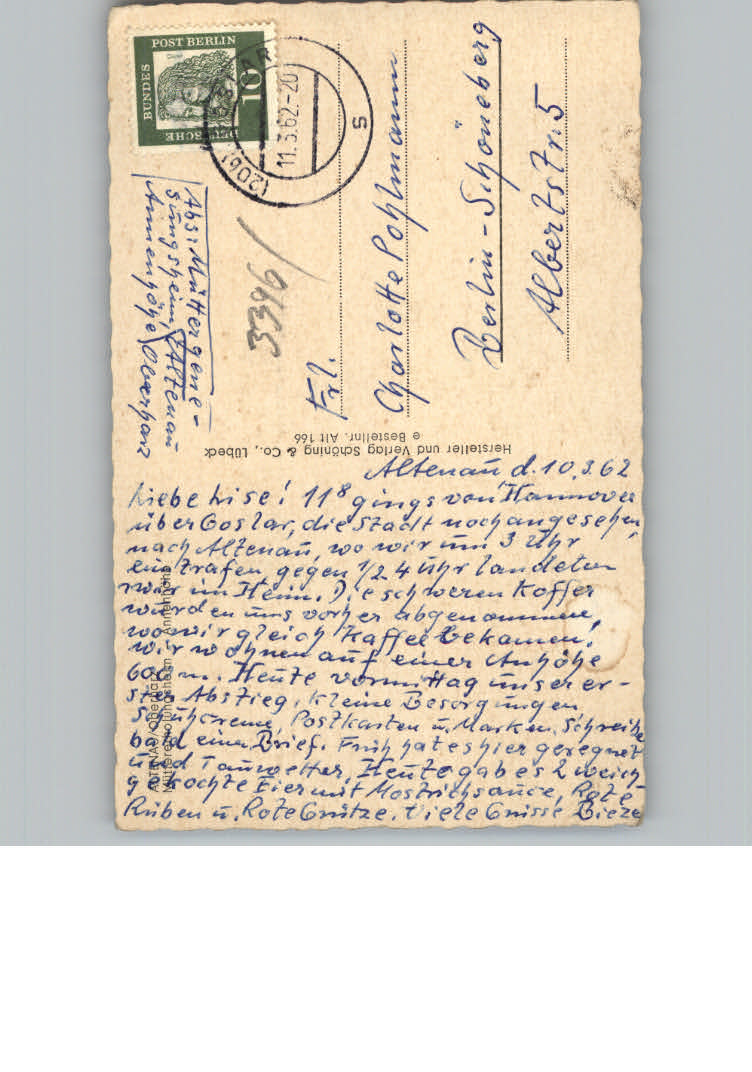 DEUTSCHE BUNDES POST BERLIN
10
Dürer
11.3.62.-20
s
(20b)
Abs: Müttergene-
sungsheim, Altenau
Annenhöhe Oberharz
3396/
Frl.
Charlotte Pohlmann
Berlin-Schöneberg
Albertstr. 5
Hersteller und Verlag Schöning & Co., Lübeck
e Bestellnr. Alt 166
ALTENAU/Oberharz
Müttererholungsheim Annenhöhe
Altenau d. 10.3.62
Liebe Lise! 11⁸ gings von Hannover
über Goslar, die Stadt noch angesehen,
nach Altenau, wo wir um 3 Uhr
eintrafen gegen 1/2 4 Uhr landeten
wir im Heim. Die schweren Koffer
wurden uns vorher abgenommen,
wo wir gleich Kaffee bekamen.
Wir wohnen auf einer Anhöhe
600 m. Heute vormittag unser er-
ster Abstieg, kleine Besorgungen
Schuhcreme, Postkarten u. Marken. Schreibe
bald einen Brief. Früh hat es hier geregnet
und Tauwetter, Heute gab es 2 weich
gekochte Eier mit Mostrichsauce, Rote-
Rüben u. Rote Grütze. Viele Grüsse